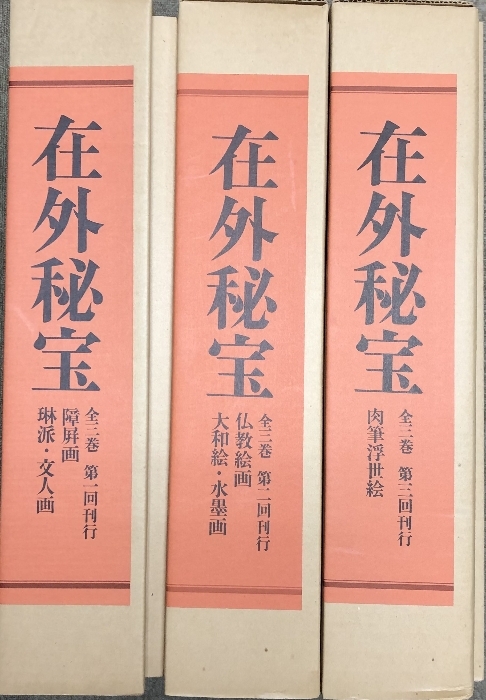 在外秘宝
全三巻 第一回刊行
障屏画
琳派・文人画
在外秘宝
全三巻 第二回刊行
仏教絵画
大和絵・水墨画
在外秘宝
全三巻 第三回刊行
肉筆浮世絵